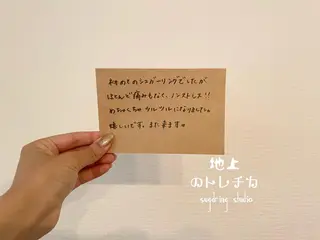 はじめてのシュガーリングでしたが
ほとんど痛みもなく、ノンストレス!!
めちゃくちゃツルツルになりました。
嬉しいです。また来ます。
地上
のトレチカ
sugaring studio